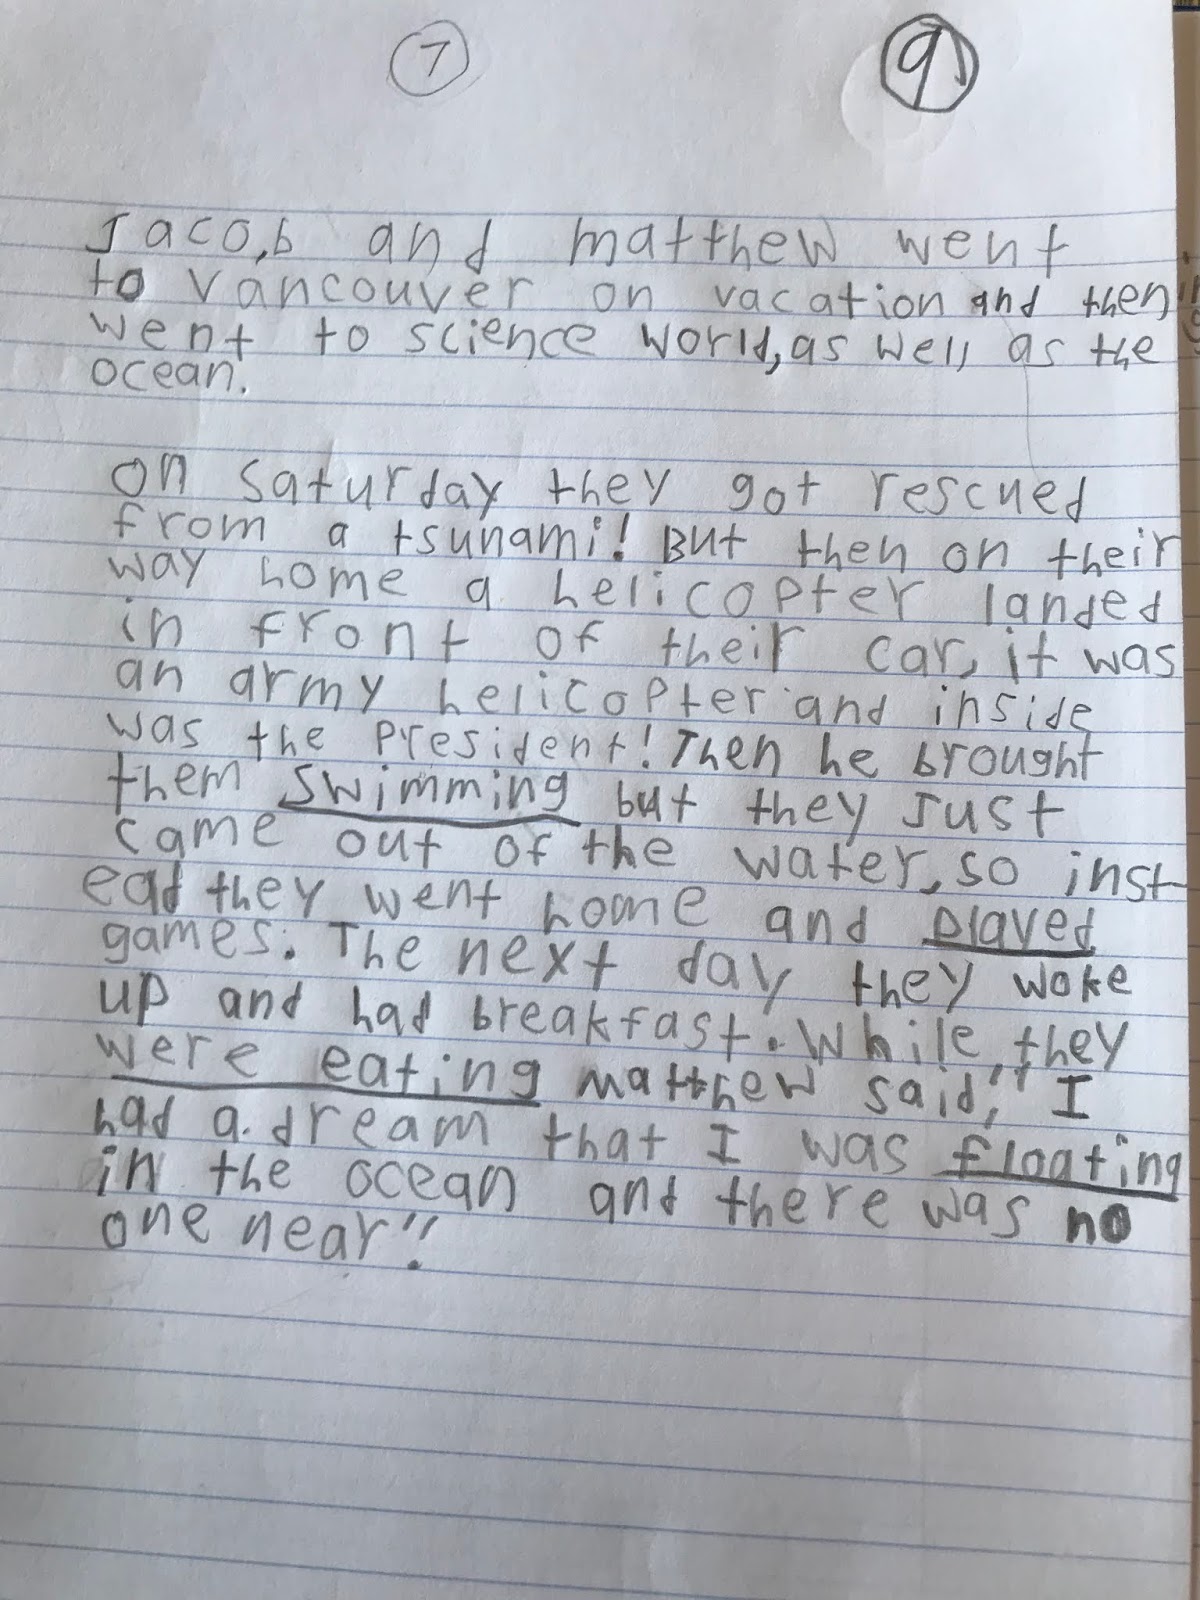 7 9
Jaco,b and matthew went
to vancouver on vacation and then
went to science world, as well as the
ocean.
on saturday they got rescued
from a tsunami! But then on their
way home a helicopter landed
in front of their car, it was
an army helicopter and inside
was the President! Then he brought
them swimming but they Just
came out of the water, so inst
ead they went home and played
games. The next day they woke
up and had breakfast. While, they
were eating matthew said," I
had a dream that I was floating
in the ocean and there was no
one near"!